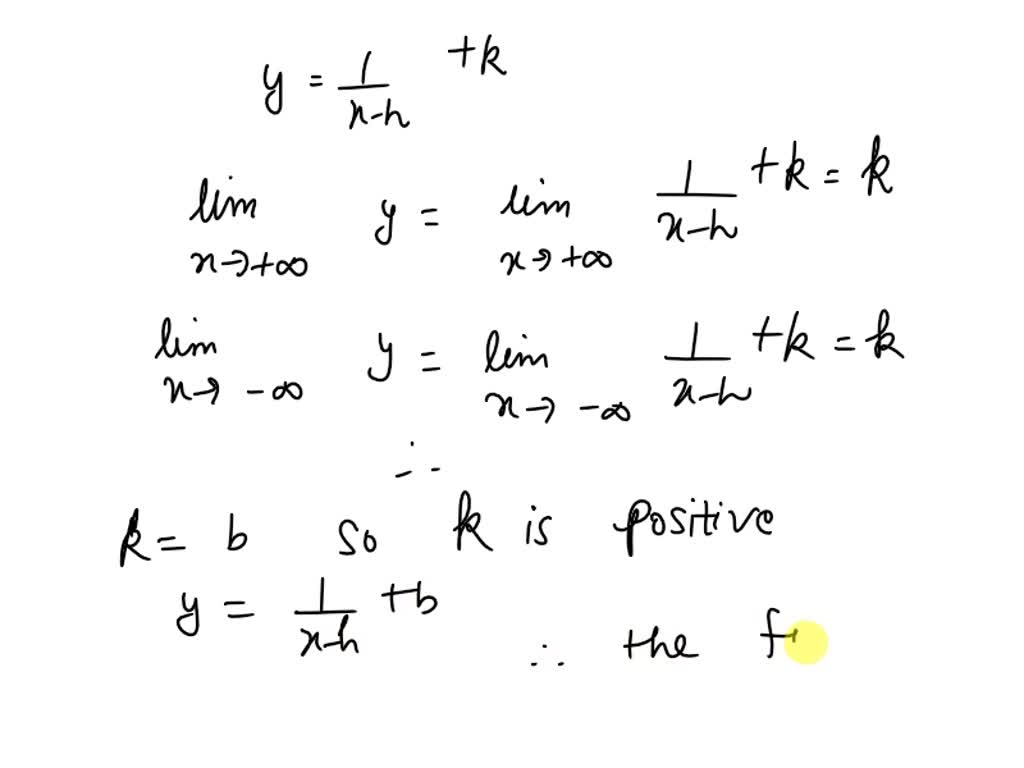 y = 1/(x-h) + k
lim x→+∞ y = lim x→+∞ 1/(x-h) + k = k
lim x→ -∞ y = lim x→ -∞ 1/(x-h) + k = k
∴
k = b so k is positive
y = 1/(x-h) + b
∴ the f